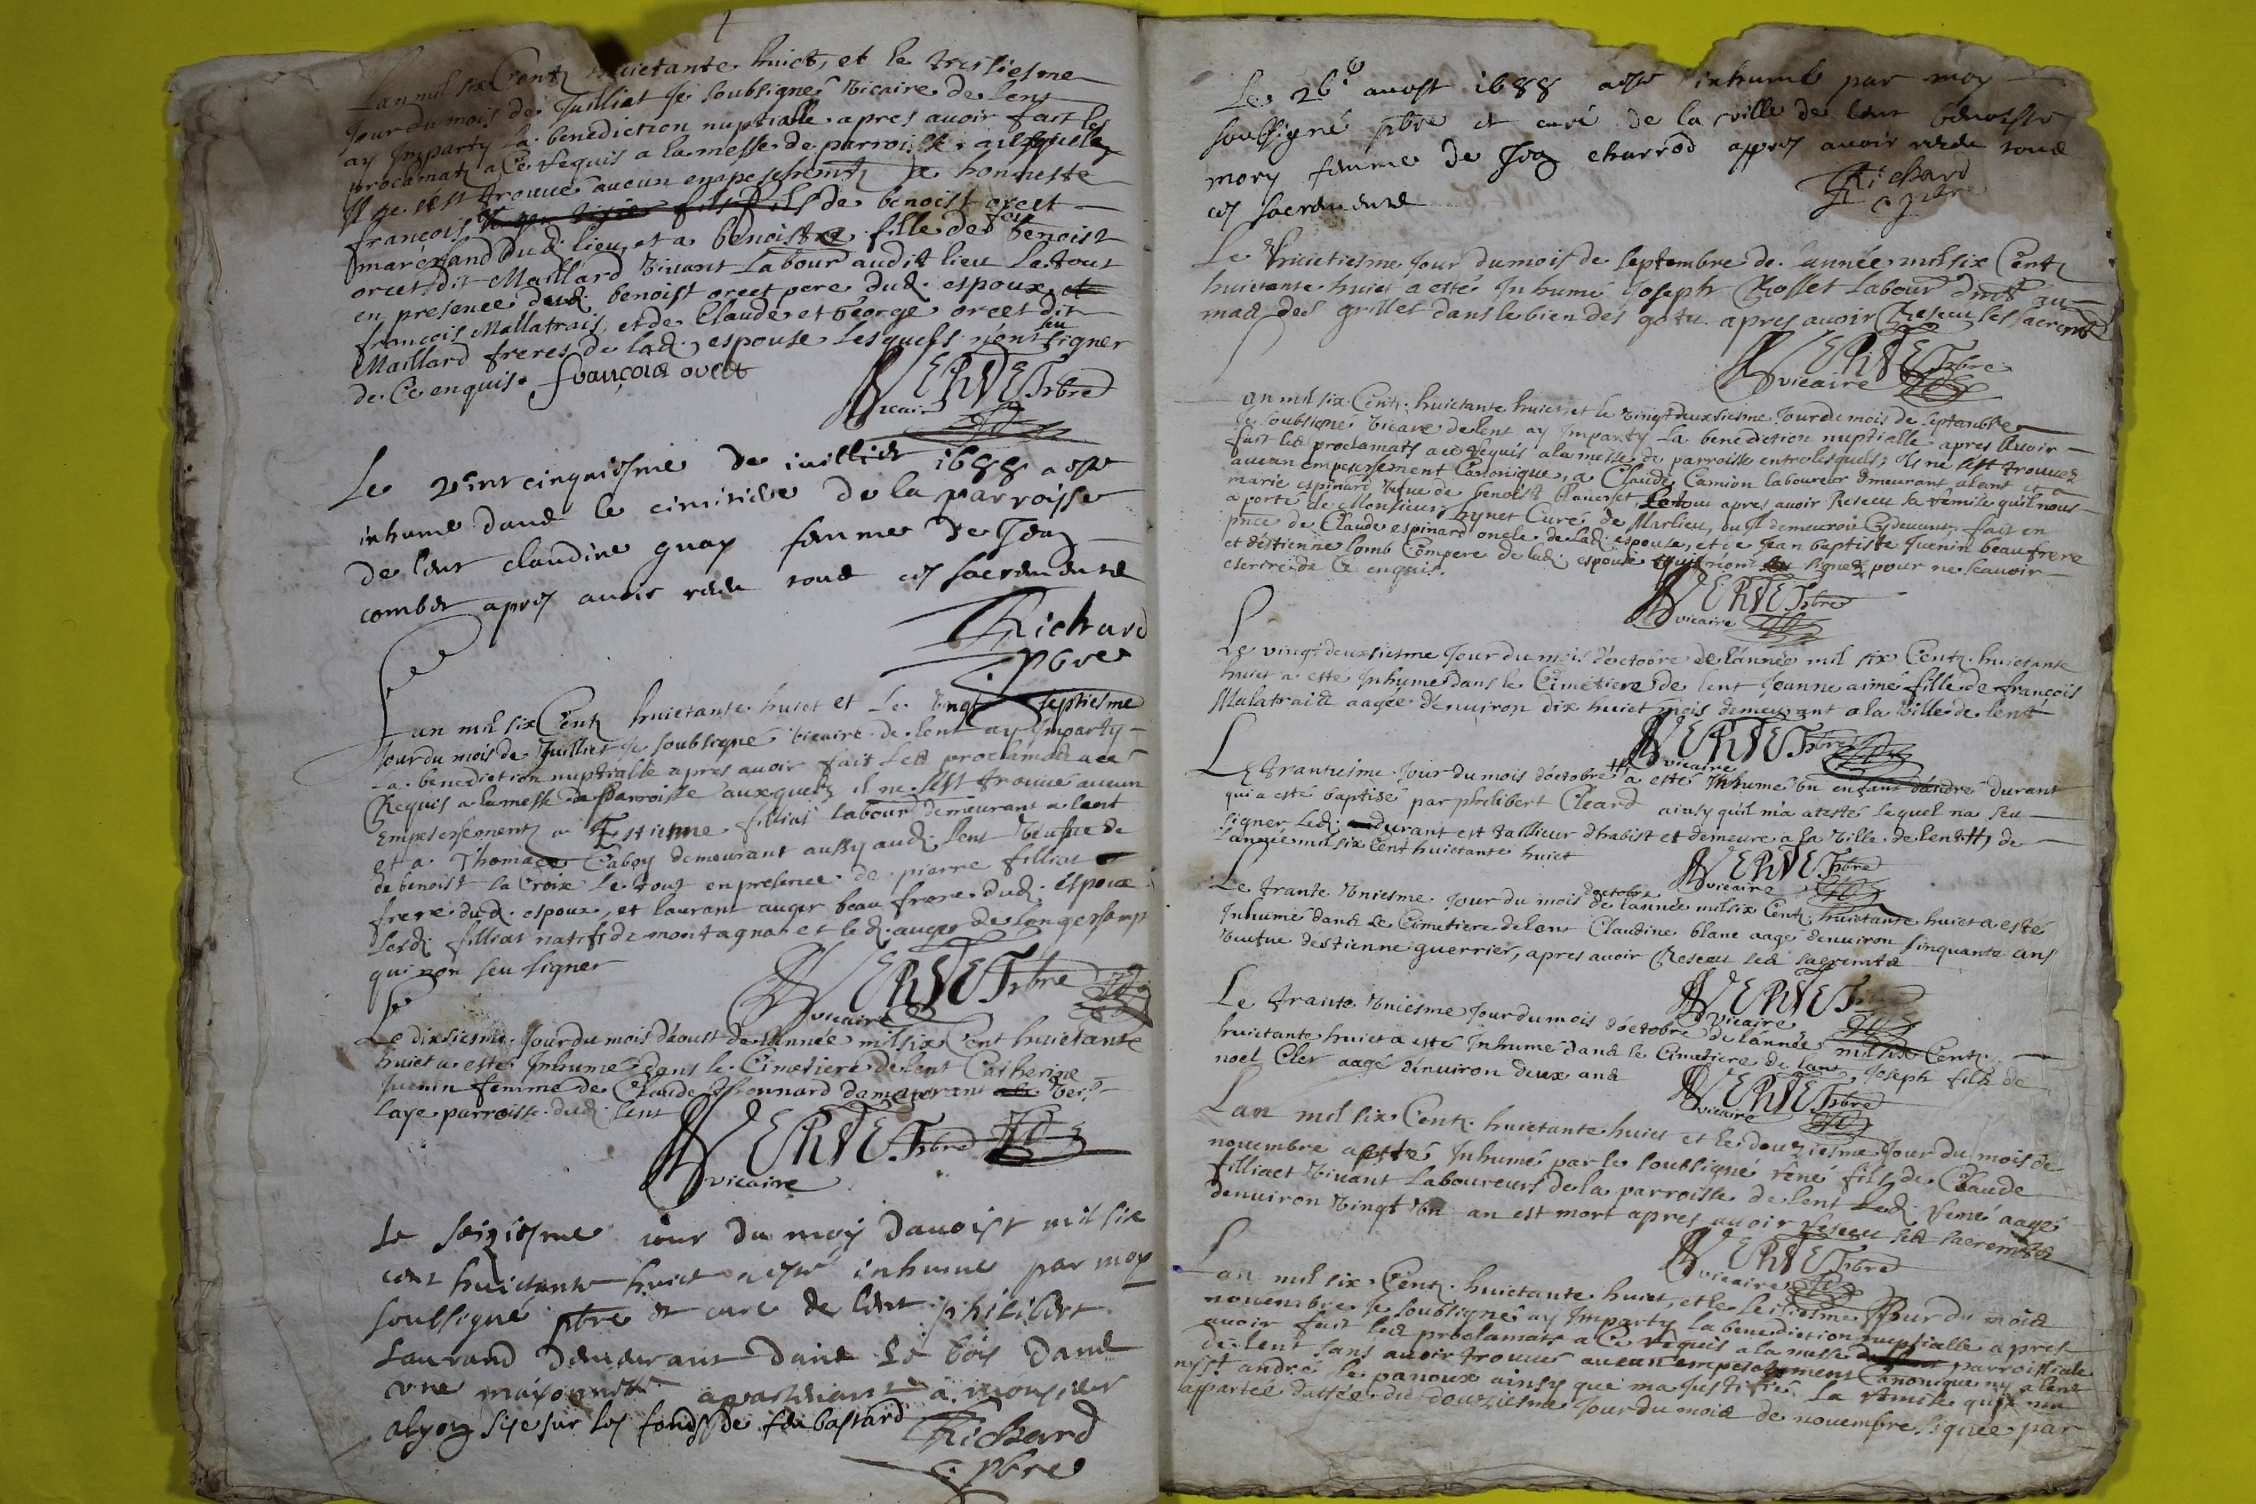 Lan mil six Centz huictante huict, et le tresiesme
Jour du mois de Julliet Je soubsigné vicaire de lent
ay Imparty la benediction nuptialle apres avoir fait les
proclamatz a Ce requis a la messe de parroisse ausquelz
Il ne sest trouué aucun empeschemtz a honneste
françois fils de benoist orcet
marchand dud. lieu, et a benoiste fille de feu benoist
orcet dit Maillard viuant Labour audit lieu Le tout
en presence dud. benoist orcet pere dud. espoux
françois Mallatrais, et de Claude et George orcet dit
Maillard freres de lad. espouse lesquels n'ont seu signer
de Ce enquis. françois orcet
VERNE Pbre
vicaire
Le vint cinquiesme de iuilliet 1688 a este
inhume dans le cimitiere de la parroisse
de lent claudine guay femme de
combet apres auoir receu tous ces sacrements
Richard
c. pbre
Lan mil six Centz huictante huict et Le vingt septiesme
Jour du mois de Julliet Je soubsigné vicaire de lent ay Imparty
La benediction nuptialle apres auoir fait Les proclamats a ce
Requis a la messe de Parroisse auxquelz il ne sest trouué aucun
Empeschement a Estienne filliat labour demeurant a lent
et a Thomace Caboy demeurant aussy aud. lent veufue de
de benoist la Croix Le tout en presence de pierre filliat
frere dud. espoux, et laurant auger beau frere dud. espoux
Lesd. filliat natifs de montagnat et led. auger de longechamp
qui non seu signer
VERNE Pbre
vicaire
Le dixiesme Jour du mois d'aoust de l'année mil six Cent huictante
huict a este Inhumé dans le Cimetiere de lent Catherine
Juenin femme de Claude demeurant
laye parroisse dud. lent
VERNE Pbre
vicaire
Le seiziesme iour du moys d'auoist mil six
cent huictante huict a este inhume par moy
soubsigné pbre et curé de lent philibert
Laurand demeurant dans Le bois dans
vne maisonnette apartenante a monsieur
alyon size sur les fonds de feu bastard
Richard
c. pbre
Le 26e auost 1688 a este inhumé par moy
soubsigné pbre et curé de la ville de lent benoiste
mory femme de charrod appres auoir receu tous
ces sacrements
Richard
c pbre
Le huictiesme Jour du mois de septembre de l'année mil six Centz
huictante huict a esté Inhumé Joseph Labour au
mas des grillet dans le bien des apres auoir Reseu les sacremts
VERNE Pbre
vicaire
Lan mil six Centz huictante huict et le vingt deuxiesme Jour du mois de septambre
Je soubsigné vicaire de lent ay Imparty La benediction nuptialle apres auoir
fait les proclamats a ce requis a la messe de parroisse entre lesquels, Il ne sest trouuez
aucun empeschement Canonique, a Claude Camion laboureur demeurant a lent et a
marie espinard vefue de benoist apres auoir Reseu la remise quil nous
a porté de Monsieur hynet Curé de Marlieu, ou Il demeuroit Cy devant, fait en
pnce de Claude espinard oncle de lad. espouse, et de Jean baptiste Juenin beau frere
et d'estienne lomb Compere de lad. espouse qui n'ont signez pour ne sçauoir
escrire de Ce enquis.
VERNE Pbre
vicaire
Le vingt deuxiesme Jour du mois d'octobre de l'année mil six Centz huictante
huict a esté Inhumé dans le Cimetiere de lent Jeanne aimé fille de françois
Malatrait aagée d'enuiron dix huict mois demeurant a la ville de lent
VERNE Pbre
vicaire
Le trantiesme Jour du mois d'octobre a esté Inhumé vn enfant d'andré durant
qui a esté baptisé par philibert Cleard ainsy quil m'a atesté lequel na seu
signer Led. durant est tallieur d'habist et demeure a la ville de lent, de
l'année mil six Cent huictante huict
VERNE Pbre
vicaire
Le trante vniesme Jour du mois d'octobre de l'année mil six Centz huictante huict a esté
Inhumé dans Le Cimetiere de lent Claudine blanc aagé denuiron sinquante ans
veufue d'estienne guerrier, apres auoir Reseu les sacremts
VERNE
vicaire
Le trante vniesme Jour du mois d'octobre de l'année mil six Centz
huictante huict a esté Inhumé dans le Cimetiere de lent, Joseph fils de
noel Cler aagé d'enuiron deux ans
VERNE Pbre
vicaire
Lan mil six Centz huictante huict et le douziesme Jour du mois de
nouembre a esté Inhumé par le soubsigné rené fils de Claude
filliact viuant Laboureurs de la parroisse de lent Led. rené aagé
denuiron vingt vn an est mort apres auoir reseu les sacremts
VERNE Pbre
vicaire
Lan mil six Centz huictante huict, et le Jour du mois
nouembre Je soubsigné ay Imparty La benediction nuptialle apres
auoir fait les proclamats a Ce requis a la messe parroissiale
de lent sans auoir trouué aucun empeschement Canonique ny a lent
ny st andré le panoux ainsy que ma Justifié La remise quil ma
apportée dattée du douziesme Jour du mois de nouembre signée par